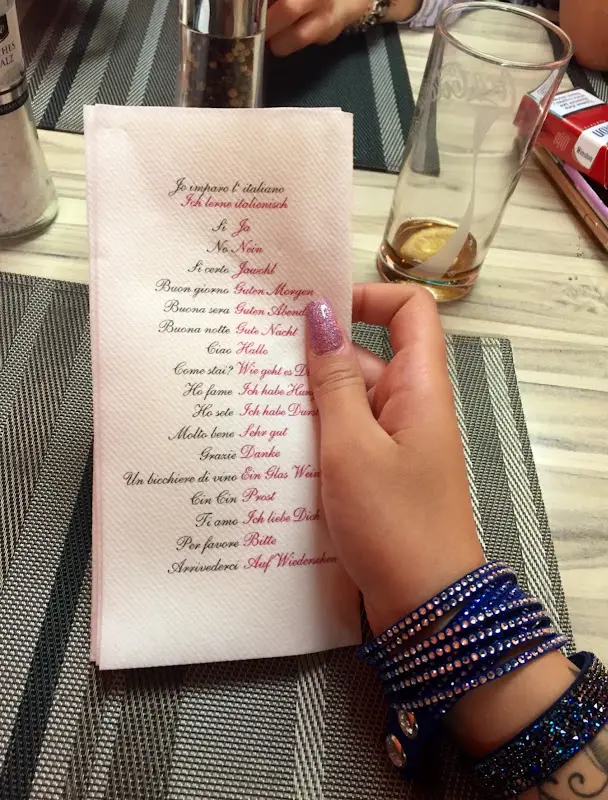 CHES
ALZ
Jo imparo l' italiano
Ich lerne italienisch
Si Ja
No Nein
Si certo Jawohl
Buon giorno Guten Morgen
Buona sera Guten Abend
Buona notte Gute Nacht
Ciao Hallo
Come stai? Wie geht es D
Ho fame Ich habe Hung
Ho sete Ich habe Durst
Molto bene Sehr gut
Grazie Danke
Un bicchiere di vino Ein Glas Wein
Cin Cin Prost
Ti amo Ich liebe Dich
Per favore Bitte
Arrivederci Auf Wiedersehen
Coca-Cola
Winston